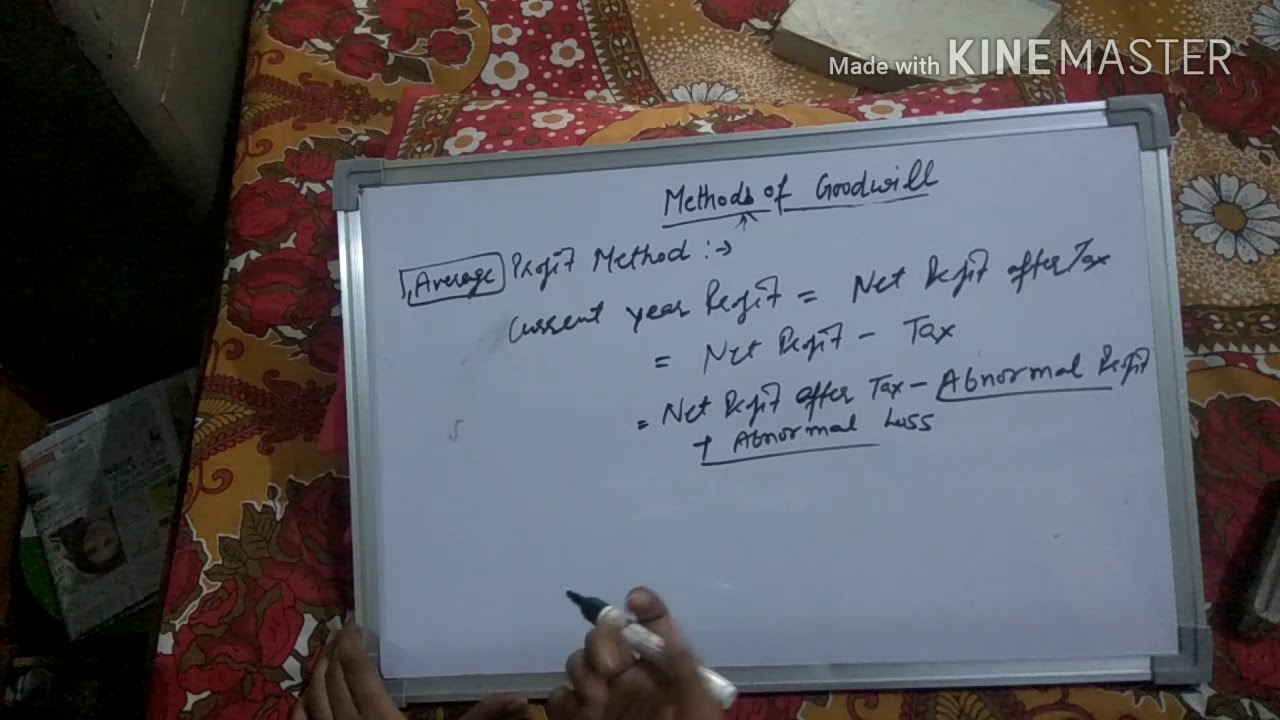 Made with KINEMASTER
Methods of Goodwill
1, Average Profit Method :→
Current year Profit = Net Profit after Tax
= Net Profit - Tax
= Net Profit after Tax - Abnormal Profit
+ Abnormal Loss